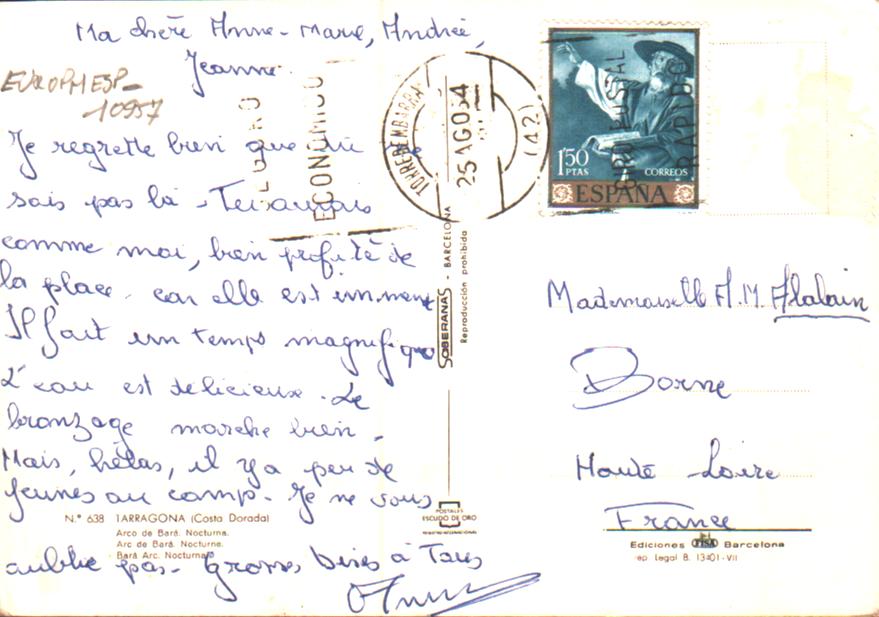 Ma chère Anne-Marie, Andrée,
Jeanne.
EUROPHESP-
10957
Je regrette bien que tu ne
sois pas là -
comme moi, bien profité de
la place, car elle est immense
Il fait un temps magnifique
L'eau est delicieuse. Le
bronzage marche bien.
Mais, hélas, il y a peu de
jeunes au camp. Je ne vous
oublie pas. Grosses bises à Tous
N.º 638 TARRAGONA (Costa Dorada)
Arco de Bará. Nocturna.
Arc de Bará. Nocturne.
Bará Arc. Nocturnal
ECONOMICO
TORREDEMBARRA
25 AGO 64
(42)
GIRO POSTAL
RAPIDO
1'50
PTAS
CORREOS
ESPAÑA
SOBERANAS - BARCELONA
Reproducción prohibida
POSTALES
ESCUDO DE ORO
REGISTRO INTERNACIONAL
Mademoiselle A.M.
Borne
Haute Loire
France
Ediciones FISA Barcelona
ep. Legal B. 13401-VII